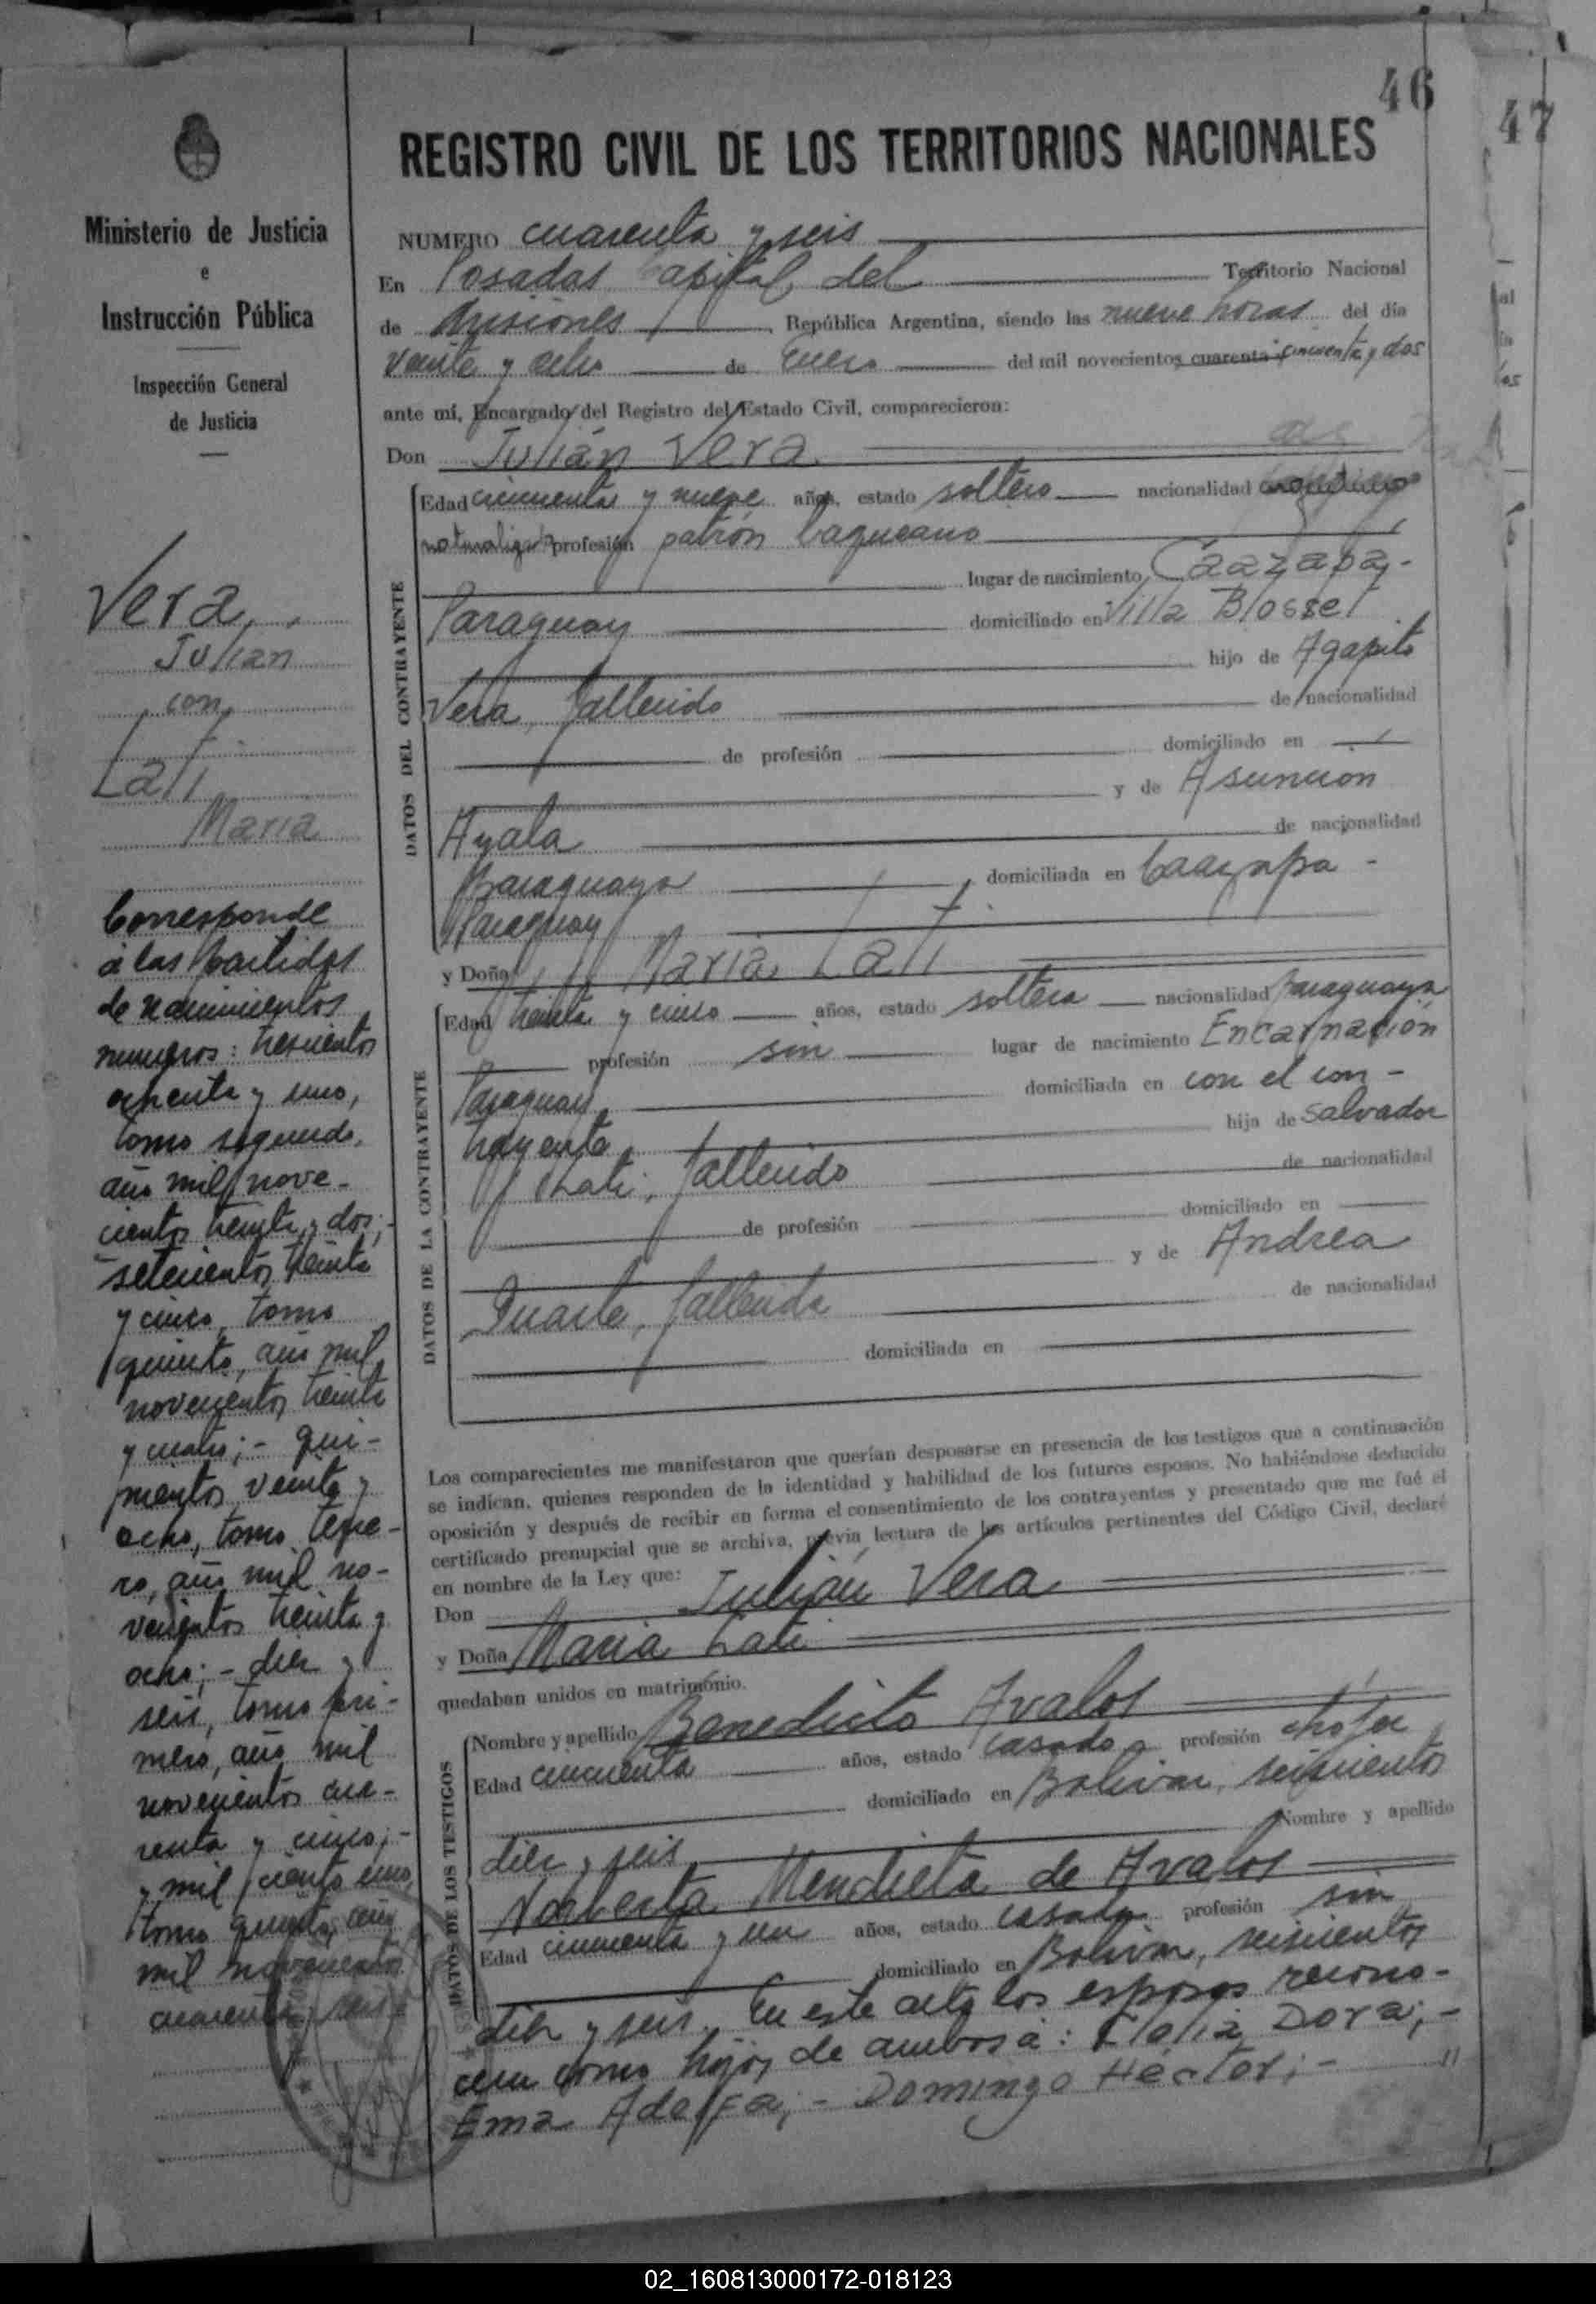 46
47
REGISTRO CIVIL DE LOS TERRITORIOS NACIONALES
Ministerio de Justicia
e
Instrucción Pública
Inspección General
de Justicia
NUMERO cuarenta y seis
En Posadas Capital del Territorio Nacional
de Misiones, República Argentina, siendo las nueve horas del día
veinte y ocho de Enero del mil novecientos cuarenta cincuenta y dos
ante mí, Encargado del Registro del Estado Civil, comparecieron:
Don Julián Vera
DATOS DEL CONTRAYENTE
Edad cincuenta y nueve años, estado soltero nacionalidad
naturalizado profesión patrón baqueano
lugar de nacimiento Caazapá-
Paraguay domiciliado en Villa Blosset
hijo de Agapito
Vera, fallecido de nacionalidad
de profesión domiciliado en
y de Asunción
Ayala de nacionalidad
Paraguaya, domiciliada en Caazapa -
Paraguay
y Doña María Lati
DATOS DE LA CONTRAYENTE
Edad treinta y cinco años, estado soltera nacionalidad paraguaya
profesión sin lugar de nacimiento Encarnación
Paraguay domiciliada en con el con-
trayente hija de Salvador
Lati, fallecido de nacionalidad
de profesión domiciliado en
y de Andrea
Duarte, fallecida de nacionalidad
domiciliada en
Los comparecientes me manifestaron que querían desposarse en presencia de los testigos que a continuación
se indican, quienes responden de la identidad y habilidad de los futuros esposos. No habiéndose deducido
oposición y después de recibir en forma el consentimiento de los contrayentes y presentado que me fué el
certificado prenupcial que se archiva, previa lectura de los artículos pertinentes del Código Civil, declaré
en nombre de la Ley que:
Don Julián Vera
y Doña María Lati
quedaban unidos en matrimonio.
DATOS DE LOS TESTIGOS
Nombre y apellido Benedicto Avalos
Edad cincuenta años, estado casado profesión chofer
domiciliado en Bolivar, seiscientos
diez y seis Nombre y apellido
Norberta Mendieta de Avalos
Edad cincuenta y un años, estado casada profesión sin
domiciliado en Bolivar, seiscientos
diez y seis. En este acto los esposos recono-
cen como hijos de ambos a: Elolia Dora;-
Ema Adelfa;- Domingo Héctor;- "
Vera,
Julian
con
Lati
Maria
Corresponde
a las partidas
de nacimientos
numeros: trescientos
ochenta y uno,
tomo segundo,
año mil nove-
cientos treinta y dos;-
setecientos treinta
y cinco, tomo
quinto, año mil
novecientos treinta
y cuatro;- qui-
nientos veinte y
ocho, tomo terce-
ro, año mil no-
vecientos treinta y
ocho;- diez y
seis, tomo pri-
mero, año mil
novecientos cua-
renta y cinco;-
y mil ciento uno,
tomo quinto, año
mil novecientos
cuarenta y seis.
02_160813000172-018123